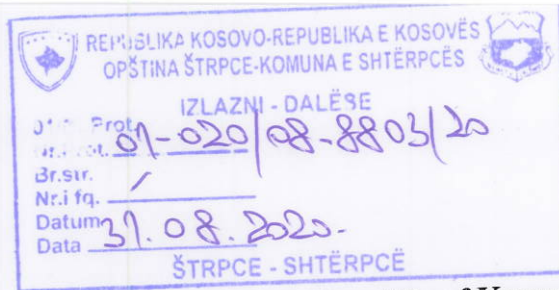 REPUBLIKA KOSOVO-REPUBLIKA E KOSOVËS
OPŠTINA ŠTRPCE-KOMUNA E SHTËRPCËS
IZLAZNI - DALËSE
Prot.
Prot. 01-020/08-8803/20
Br.str.
Nr.i fq. /
Datum
Data 31.08.2020.-
ŠTRPCE - SHTËRPCË